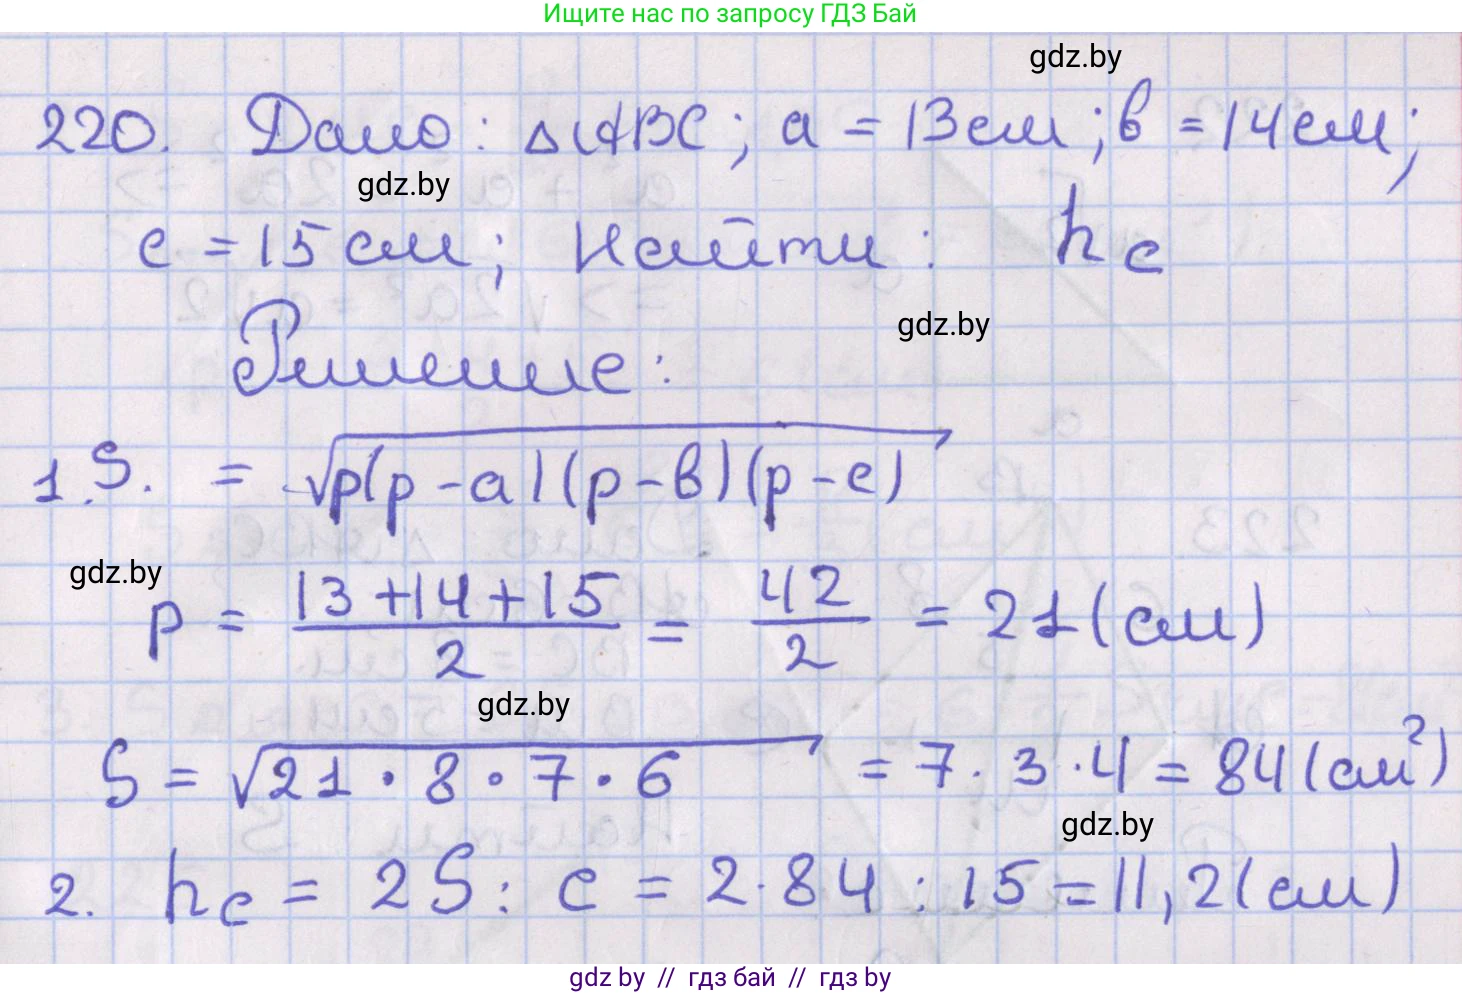 Ищите нас по запросу ГДЗ Бай
gdz.by
220. Дано: △ABC; a = 13см; в = 14см;
gdz.by
c = 15см; Найти: hc
gdz.by
Решение:
1. S. = √p(p-a)(p-в)(p-c)
gdz.by
p = (13+14+15)/2 = 42/2 = 21(см)
gdz.by
S = √21·8·7·6 = 7·3·4 = 84(см²)
gdz.by
2. hc = 2S : c = 2·84 : 15 = 11,2(см)
gdz by // гдз бай // гдз by